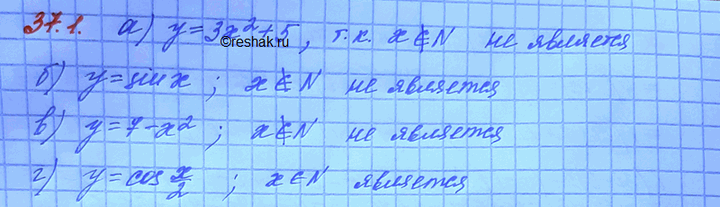 37.1. а) y = 3x² + 5, т.к. x ∉ N не является
©reshak.ru
б) y = sin x ; x ∉ N не является
в) y = 7 - x² ; x ∉ N не является
г) y = cos x/2 ; x ∈ N является